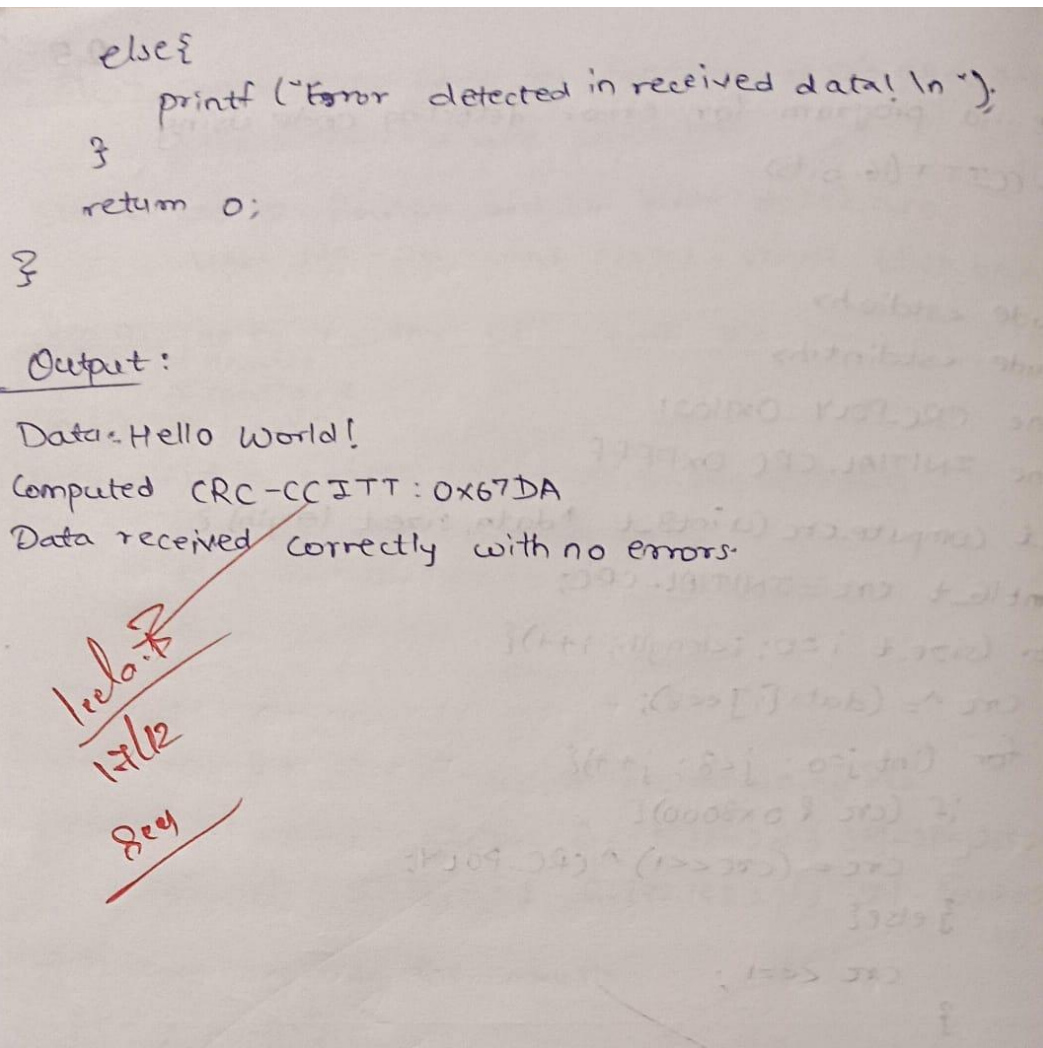 else{
printf ("Error detected in received data! \n");
}
return 0;
}
Output:
Data: Hello World!
Computed CRC-CCITT: 0x67DA
Data received correctly with no errors.
17/12